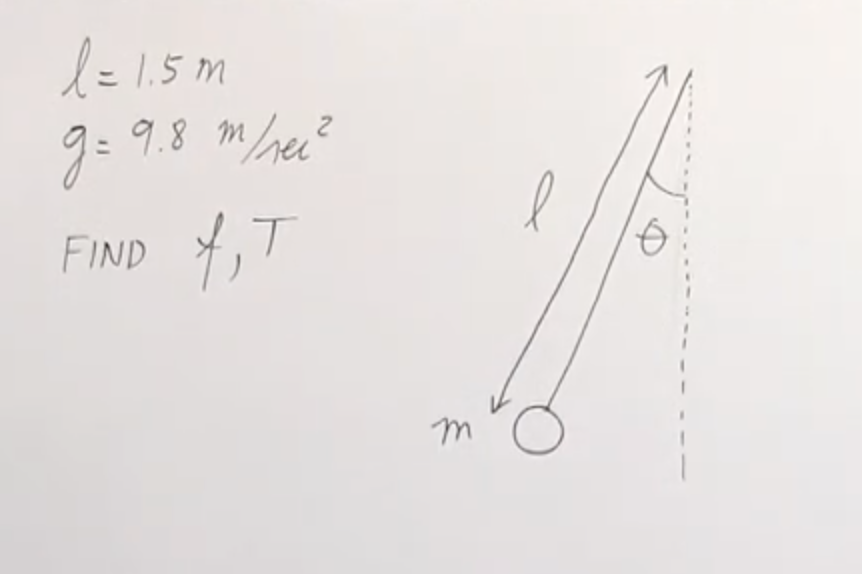 l = 1.5 m
g = 9.8 m/sec²
FIND f, T
l
θ
m